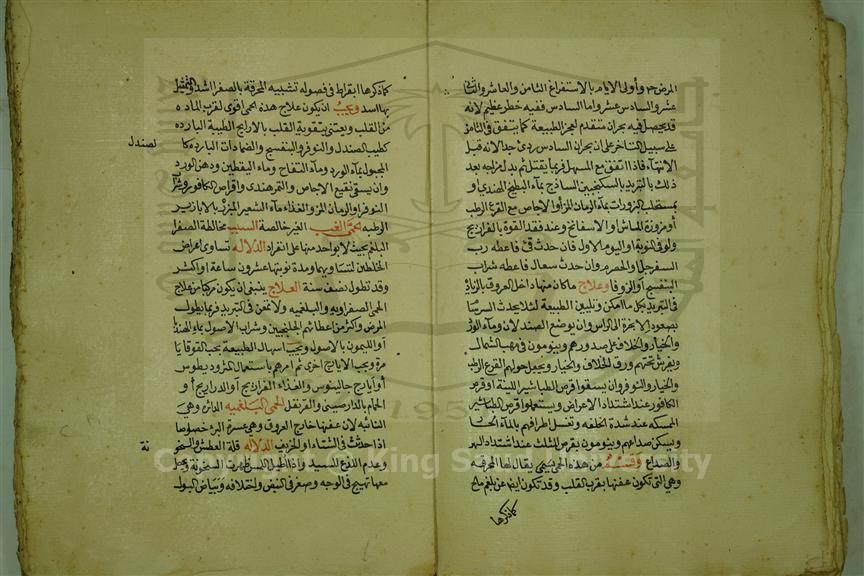 المرض ٣ وأولى الايام بالاستفراغ الثامن والعاشر والثانى
عشر والسادس عشر واما السادس ففيه خطر عظيم لانه
قد يحصل فيه بحران متقدم لعجز الطبيعة كما يتفق فى الثامن
على سبيل التاخر على ان بحران السادس ردئ جدا لانه قبل
الانتهآء فاذا اتفق مع المسهل فربما يقتل ثم يدل مزاجه بعد
ذلك بالتبريد بالسكنجبين الساذج بمآء البطيخ الهندى أو
بمستحلب البزورات بمآء الرمان المز أو الاجاص مع القرع الرطب
أو مزورة الماش أو الاسفاناخ وعند فقد القوة بالفراريج
ولو فى النوبة أو اليوم الاول فان حدث قئ فاعطه رب
السفرجل والحصرم وان حدث سعال فاعطه شراب
البنفسج أو الزوفا وعلاج ماكان منها داخل العروق بالزيادة
فى التبريد بكل ما امكن وتليين الطبيعة لئلا يحدث السرسام
بصعود الابخرة الى الراس وان يوضع الصندلان ومآء الورد
والخيار والخلاف على صدورهم وينومون فى مهب الشمال
ويفرش تحتهم ورق الخلاف والخيار ويجعل حولهم القرع الرطب
والخيار والنوفر وان يسقوا قرص الطباشير اللينة او قرص
الكافور عند اشتداد الاعراض ويستعملوا قرص الطباشير
الممسكه عند شدة الخلفه وتغسل اطرافهم بالمآء الحار
ويسكن صداعهم وينومون بقرص المثلث عند اشتداد السهر
والصداع وقسم من هذه الحمى يسمى يقال لها المحرقه
وهى التى تكون عفنها بقرب القلب وقد تكون ايضا عن بلغم مالح
كما ذكرها
كما ذكرها ابقراط فى فصوله تشبيه المحرقة بالصفرا اشد والتمثيل
بها اسد ويجب ان يكون علاج هذه الحمى اقوى لقرب الماده
من القلب ويعتنى بتقوية القلب بالارايح الطيبة البارده
كطيب الصندل والنوفر والبنفسج والضمادات البارده كا
لصندل
المجبول بمآء الورد ومآء التفاح وماء اليقطين ودهن الورد
وان يسقى نقيع الاجاص والتمرهندى واقراص الكافور وشراب
النوفر أو الرمان المز والغذاء مآء الشعير المبزر بالابازير
الرطبه الحمى الغب الغير خالصة السبب مخالطة الصفرا
البلغم بحيث لا يوجد منها على انفراد الدلاله تساوى اعراض
الخلطين لتساويهما ومدة نوبتها عشرون ساعة او اكثر
وقد تطول نصف سنة العلاج ينبغى ان يكون مركبا من علاج
الحمى الصفراويه والبلغميه ولا تمعن فى التبريد فربما يطول
المرض واكثر من اعطائهم الجلنجبين وشراب الاصول بمآء الهندبا
أو الليمون بالاصول ويجب اسهال الطبيعة بحب القوقايا
مرة وبحب الايارج اخرى ثم امرهم باستعمال المثرود يطوس
أو أيارج جالينوس والغذاء الفراريج أو الدراريج أو
الحمام بالدارصينى والقرنفل الحمى البلغميه الدائره وهى
النائبه لان عفنها خارج العروق وهى عسرة البرء خصوصا
اذا حدثت فى الشتاء أو الخريف الدلاله قلة العطش والسخونة
نة
وعدم اللذع للمسيد واذا اطيل اللمس ظهرت السخونة ويحصل
معها تهبج فى الوجه وصغر فى النبض واختلافه وبياض البول
Copyright © King Saud University
1957